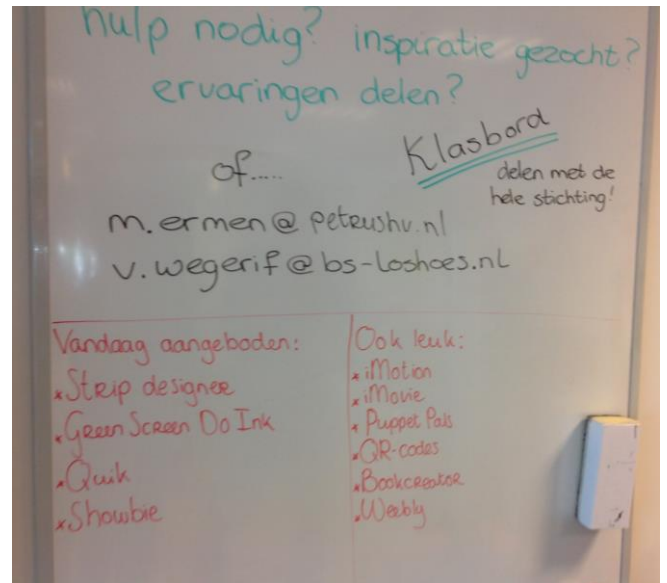 hulp nodig? inspiratie gezocht?
ervaringen delen?
of.....
Klasbord
delen met de
hele stichting!
m.ermen@petrushv.nl
v.wegerif@bs-loshoes.nl
Vandaag aangeboden:
*Strip designer
*Green Screen Do Ink
*Quik
*Showbie
Ook leuk:
*iMotion
*iMovie
*Puppet Pals
*QR-codes
*Bookcreator
*Weebly